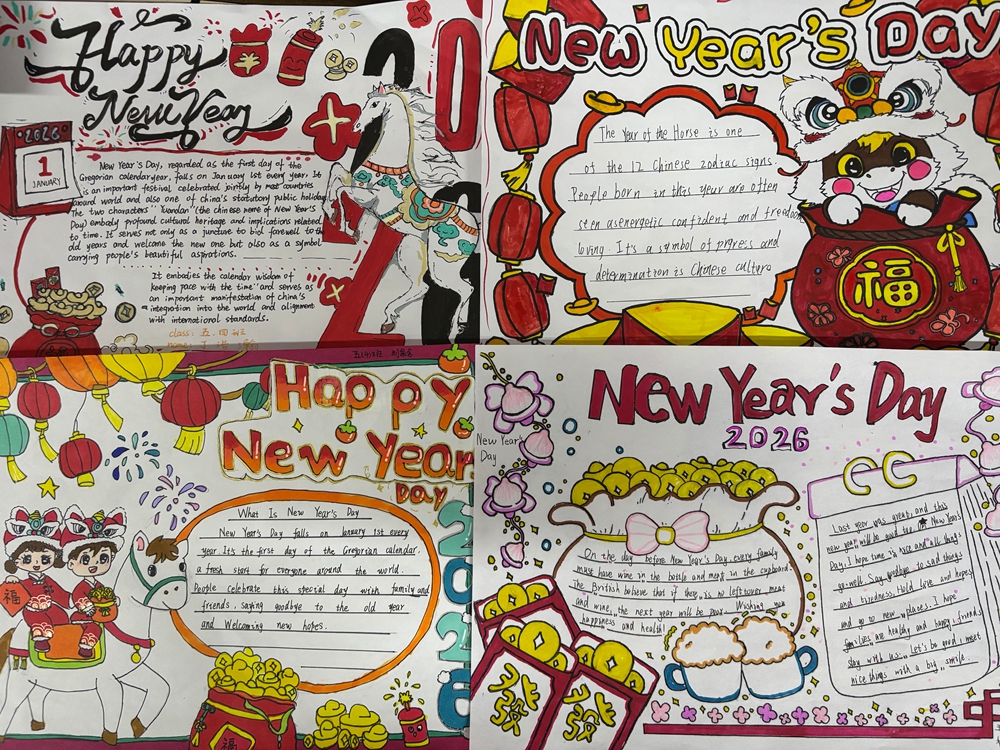 Happy
New Year
2026
1
JANUARY
New Year's Day, regarded as the first day of the
Gregorian calendar year, falls on January 1st every year. It
is an important festival celebrated jointly by most countries
around world and also one of china's statutory public holiday
The two characters "Yuandan" (the chinese name of New Year's
Day) embody profound cultural heritage and implications related
to time. It serves not only as a juncture to bid farewell to the
old years and welcome the new one but also as a symbol
carrying people's beautiful aspirations.
It embodies the calendar wisdom of
keeping pace with the time" and serves as
an important manifestation of china's
integration into the world and alignment
with international standards.
class: 五.四班
name:
20
New Year's Day
The Year of the Horse is one
of the 12 Chinese zodiac signs.
People born in this year are often
seen as energetic confident and freedom
loving. It's a symbol of prgress and
determination is Chenese cultura
福
Happy
New Year
Day
2026
What Is New Year's Day
New Year's Day falls on lanuary 1st every
year. It's the first day of the Gregorian calendar.
a fresh start for everyone around the world.
People celebrate this special day with family and
friends, saying goodbye to the old year
and Welcoming new hopes.
福
福
New Year's Day
2026
New Year's
Day
On the day before New Year's Day, every family
must have wine in the bottle and meat in the cupboard.
The British believe that if there is no leftover meat
and wine, the next year will be poor. Wishing you
happiness and health!
發
發
Last year was great, and this
new year will be good too. New Year's
Day, I hope time is nice and all things
go well. Say goodbye to sad things
and tiredness. Hold love and hopes
and go to new places. I hope
families are healthy and happy, friends
stay with us. Let's be good, meet
nice things with a big smile.